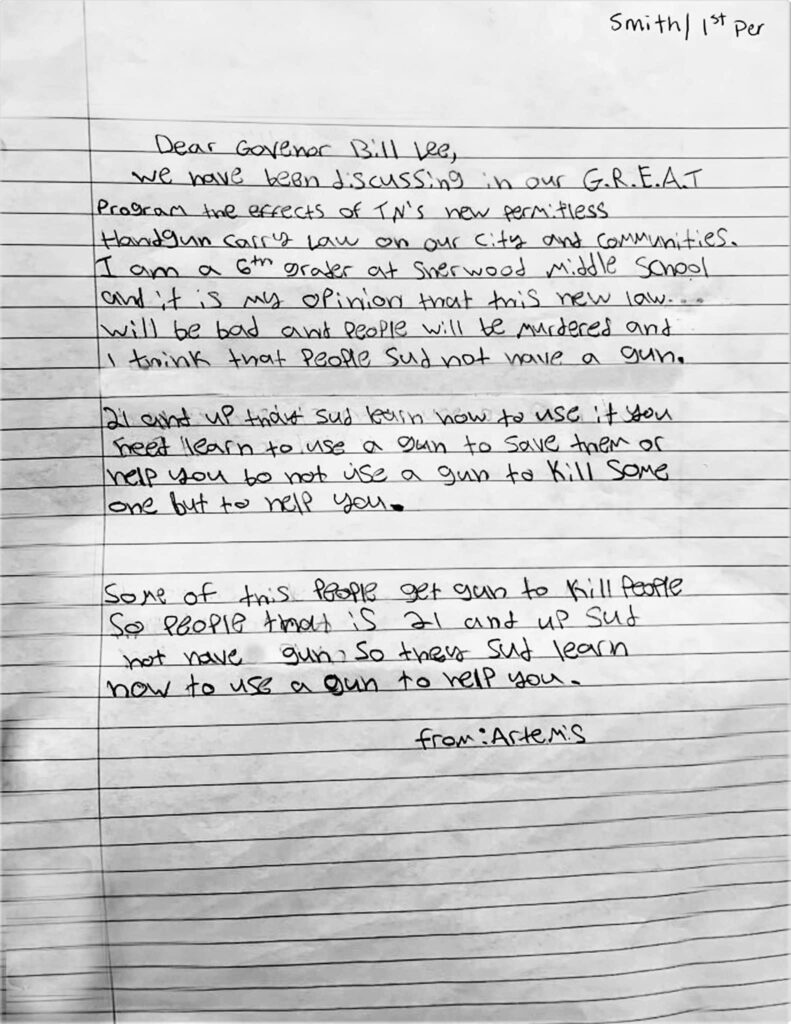 Smith/ 1st Per
Dear Govenor Bill Lee,
we have been discussing in our G.R.E.A.T
Program the effects of TN's new permitless
Handgun carry law on our city and communities.
I am a 6th grader at Sherwood Middle School
and it is my opinion that this new law...
will be bad and people will be murdered and
I think that people sud not have a gun.
21 and up that sud learn how to use it you
need learn to use a gun to save them or
help you bo not use a gun to kill some
one but to help you.
Some of this people get gun to kill people
So people that is 21 and up sud
not have gun. So they sud learn
how to use a gun to help you.
from: Artemis